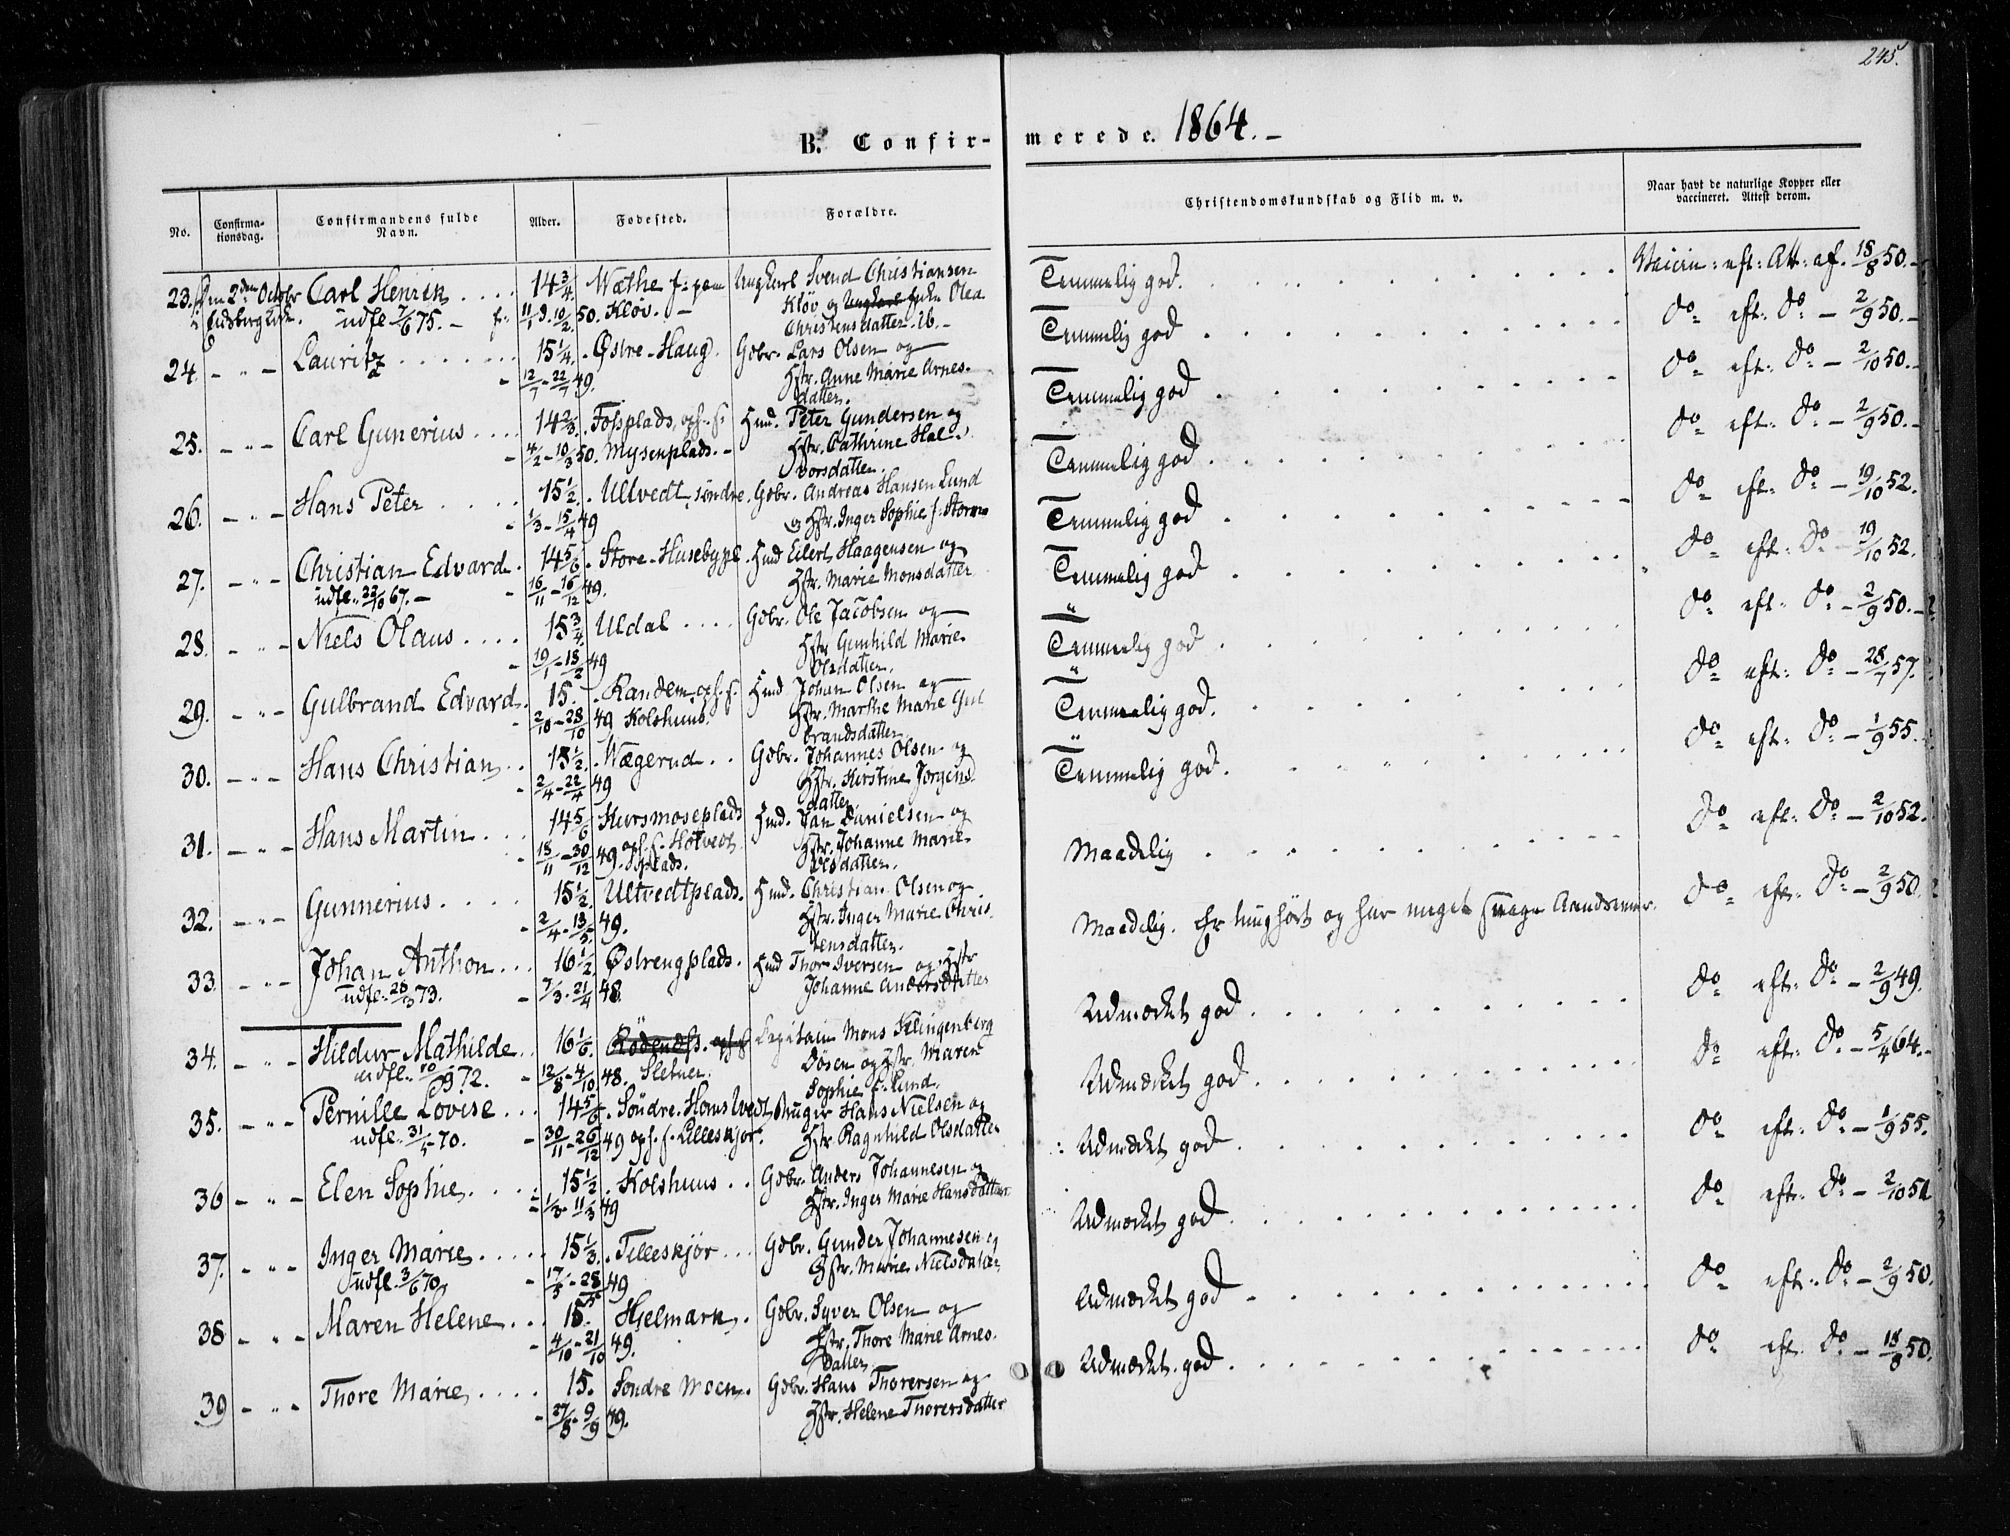 245.
B. Confirmerede. 1864. –
No. Confirmationsdag. Confirmandens fulde Navn. Alder. Fødested. Forældre. Christendomskundskab og Flid m. v. Naar havt de naturlige Kopper eller vaccineret. Attest derom.
23. Den 2den Octobr Carl Henrik 14 3/4 Wæthe Ungkarl Svend Christiansen Temmelig god. Vaccin: eft: Att: af. 18/8 50. –
i Eidsberg Kirke. udfl. 7/6 75. – 11/1 9. 10/2 50. Kløv. – Kløv og Olea
Christensdatter. Ub. –
24. – " – Lauritz 15 1/4. Østre-Haug. Gbr. Lars Olsen og Temmelig god do eft: do – 2/9 50. –
12/7 – 22/7 49. Hstr. Anne Marie Arnes-
datter.
25. – " – Carl Gunerius 14 2/3. Fossplads, oph. f. Hmd. Peter Gundersen og Temmelig god do eft: do – 2/10 50. –
4/2 – 10/3 50. Mysenplads. – Hstr. Cathrine Hal-
vorsdatter.
26. – " – Hans Peter 15 1/2. Ultvedt, søndre. Gbr. Andreas Hansen Lund Temmelig god do eft: do – 2/9 50. –
1/3 – 15/4 49 og Hstr. Inger Sophie f. Storm
27. – " – Christian Edvard. 14 5/6. Store-Husebyye. Hmd Eilert Haagensen og Temmelig god do eft: do – 19/10 52.
udfl. 22/10 67. – 16/11 – 16/12 49. Hstr. Marie Monsdatter
28. – " – Niels Olaus 15 3/4. Uldal Gbr. Ole Jacobsen og Temmelig god do eft: do 19/10 52.
19/1 – 18/2 49 Hstr Gunhild Marie
Olsdatter.
29. – " – Gulbrand Edvard. 15. Randem, oph. f. Hmd Johan Olsen og Temmelig god do eft: do – 2/9 50. –
2/10 – 28/10 49 Kolshuus. Hstr. Marthe Marie Gul
brandsdatter
30. – " – Hans Christian 15 1/2. Wægerud Gbr. Johannes Olsen og Temmelig god. do eft: do – 28/7 57.
2/4 – 22/4 49 Hstr. Kerstine Jørgens
datter
31. – " – Hans Martin 14 5/6 Hersmoseplads Hmd. Jan Danielsen og Temmelig god. do eft: do – 1/9 55.
18/11 – 30/12 49. oph. f. Hotvedt plads. Hstr. Johanne Marie
Olsdatter.
32. – " – Gunnerius 15 1/2. Ultvedtplads. Hmd. Christian Olsen og Maadelig do eft: do – 2/10 52.
2/4 – 13/5 49. Hstr. Inger Marie Chris
tensdatter.
33 – " – Johan Anthon 16 1/2. Østrengplads. Hmd Thor Iversen og Hstr Maadelig. Er tunghørt og har meget svage Aandsevner. do eft: do – 2/9 50.
udfl. 28/3 73. 7/3 – 21/4 48. Johanne Andersdatter
34. – " – Hildur Mathilde 16 1/6. Rødenæss. oph. f Capitain Mons Klingenberg Udmærket god do eft: do – 2/9 49.
udfl. 10/9 72. 12/8 – 4/10 48. Sletner. Døsen og Hstr. Maren
Sophie f. Lund.
35. – " – Pernille Lovise 14 5/6. Søndre Homstvedt Bruger Hans Nielsen og Udmærket god do eft: do – 5/4 64. –
udfl. 31/5 70. 30/11 – 26/12 49 oph. f. Lilleskjør. Hstr Ragnhild Olsdatter
36 – " – Elen Sophie 15 1/2. Kolshuus Gbr. Anders Johannesen og Udmærket god do eft: do – 1/9 55.
1/3 – 11/3 49 Hstr. Inger Marie Hansdatter
37. – " – Inger Marie 15 1/3. Lilleskjør Gbr. Gunder Johannesen og Udmærket god do eft: do – 2/10 51
udfl. 3/6 70. 17/5 – 28/5 49 Hstr. Marie Nielsdatter
38 – " – Maren Helene 15. Hjelmark. Gbr. Syver Olsen og Udmærket god do eft: do – 2/9 50.
4/10 – 21/10 49. Hstr. Thore Marie Arnes-
datter
39 – " – Thore Marie 15. Søndre Moen. Gbr. Hans Thorersen og Udmærket god do eft. do – 18/8 50.
27/8 – 9/9 49. Hstr. Helene Thorersdatter